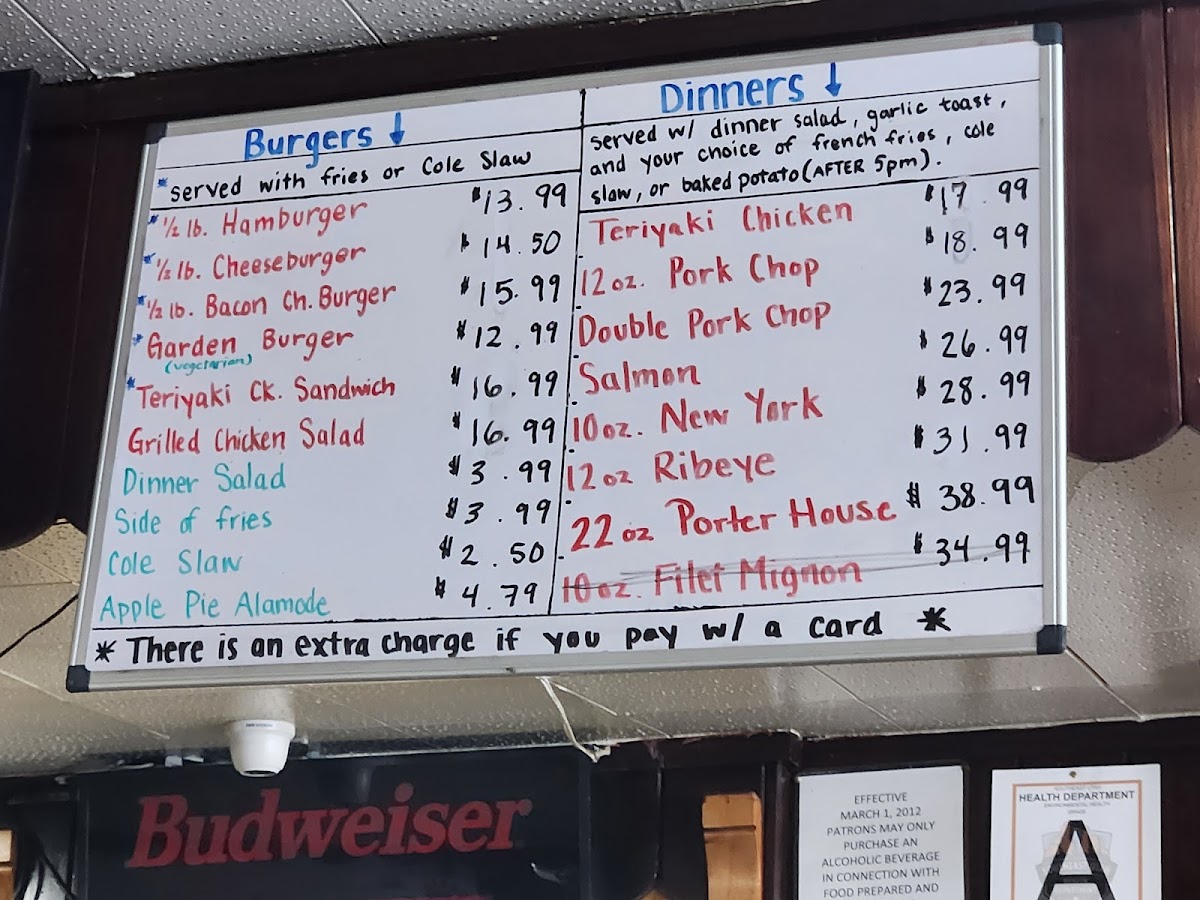 Burgers ↓
*served with fries or Cole Slaw
*½ lb. Hamburger $13.99
*½ lb. Cheeseburger $14.50
*½ lb. Bacon Ch. Burger $15.99
*Garden Burger $12.99
(vegetarian)
*Teriyaki Ck. Sandwich $16.99
Grilled Chicken Salad $16.99
Dinner Salad $3.99
Side of fries $3.99
Cole Slaw $2.50
Apple Pie Alamode $4.79
Dinners ↓
served w/ dinner salad, garlic toast,
and your choice of french fries, cole
slaw, or baked potato (AFTER 5pm).
Teriyaki Chicken $17.99
12oz. Pork Chop $18.99
Double Pork Chop $23.99
Salmon $26.99
10oz. New York $28.99
12oz Ribeye $31.99
22oz Porter House $38.99
10oz. Filet Mignon $34.99
* There is an extra charge if you pay w/ a card *
Budweiser
EFFECTIVE
MARCH 1, 2012
PATRONS MAY ONLY
PURCHASE AN
ALCOHOLIC BEVERAGE
IN CONNECTION WITH
FOOD PREPARED AND
HEALTH DEPARTMENT
ENVIRONMENTAL HEALTH
A